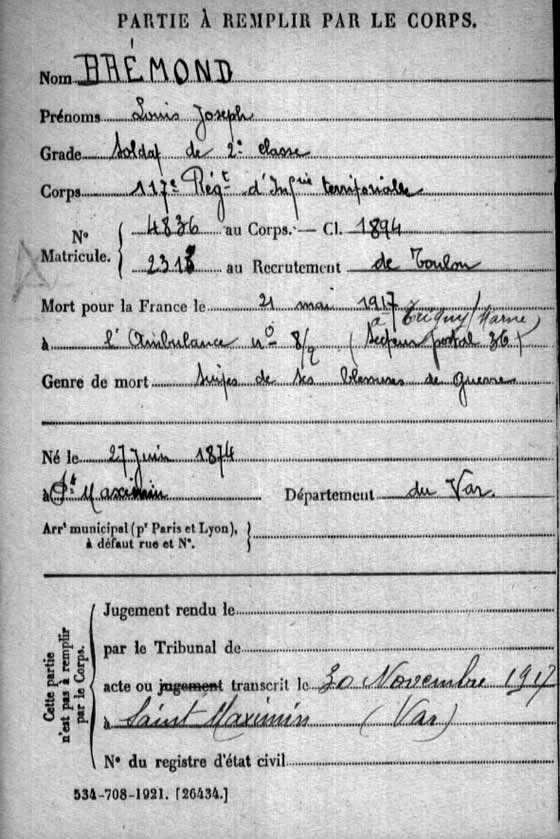 PARTIE À REMPLIR PAR LE CORPS.
Nom BRÉMOND
Prénoms Louis Joseph
Grade Soldat de 2e classe
Corps 117e Régt d'Infrie territoriale
No Matricule. { 4836 au Corps. — Cl. 1894
2313 au Recrutement de Toulon
Mort pour la France le 21 mai 1917
à Trigny (Marne)
à l'Ambulance no 8/9 (Secteur postal 36)
Genre de mort Suites de ses blessures de guerre
Né le 27 Juin 1874
à St Maximin Département du Var.
Arrt municipal (pr Paris et Lyon),
à défaut rue et No.
Cette partie n'est pas à remplir par le Corps.
Jugement rendu le
par le Tribunal de
acte ou jugement transcrit le 30 Novembre 1917
à Saint Maximin (Var)
No du registre d'état civil
534-708-1921. [26434.]